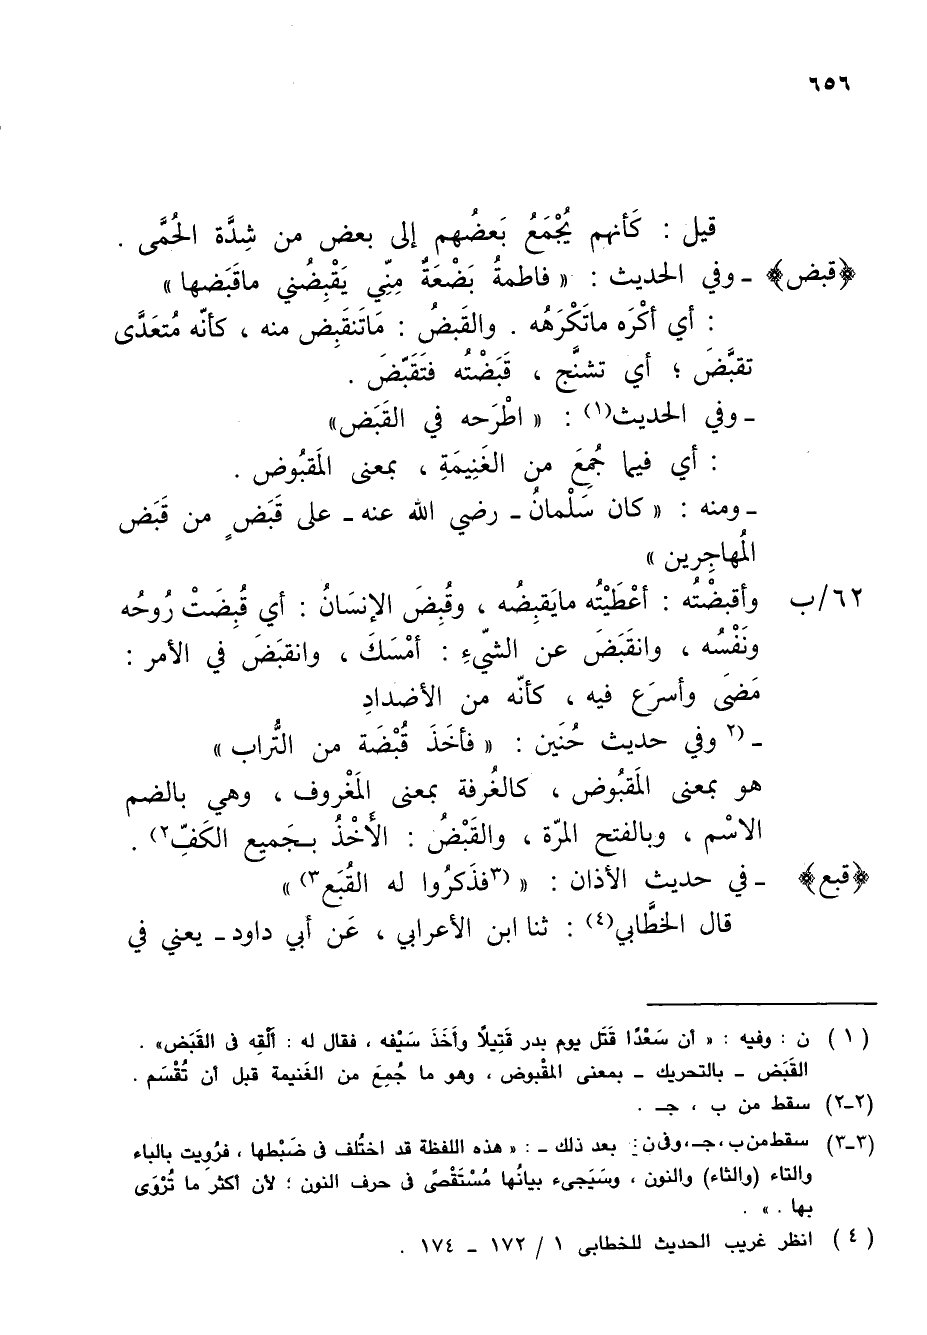 ٦٥٦
قيل : كَأنهم يُجْمَعُ بَعضُهم إلى بعض من شِدَّة الحُمَّى .
﴿قبض﴾ ـ وفي الحديث : « فاطمةُ بَضْعَةٌ مِنِّي يَقْبِضُني ماقَبَضها »
: أي أكْرَه ماتَكْرَهُه . والقَبضُ : مَاتَنقَبِض منه ، كأنّه مُتَعَدَّى
تقبَّضَ ؛ أي تشنَّج ، قَبَضْتُه فتَقَبَّضَ .
ـ وفي الحديث(١) : « اطْرَحه في القَبَض»
: أي فيما جُمِعَ من الغَنِيمَةِ ، بمعنى المَقبُوض .
ـ ومنه : « كان سَلْمانُ ـ رضي الله عنه ـ على قَبَضٍ من قَبَض
المُهاجِرين »
٦٢/ب وأقبضْتُه : أعْطَيْتُه مايَقبِضُه ، وقُبِضَ الإنسَانُ : أي قُبِضَتْ رُوحُه
ونَفْسُه ، وانقَبَضَ عن الشّيءِ : أمْسَكَ ، وانقبَضَ في الأمر :
مَضىَ وأسرَع فيه ، كأنّه من الأضدادِ
ـ (٢ وفي حديث حُنَين : « فأخَذَ قُبْضَة من التُّراب »
هو بمعنى المَقبُوض ، كالغُرفة بمعنى المَغْروف ، وهي بالضم
الاسْم ، وبالفتح المرّة ، والقَبْضُ : الأَخْذُ بـجَميع الكَفّ٢) .
﴿قبع﴾ ـ في حديث الأذان : « (٣فذَكرُوا له القُبَع٣) »
قال الخطَّابي(٤) : ثنا ابن الأعرابي ، عَن أبي داود ـ يعني في
(١) ن : وفيه : « أن سَعْدًا قَتَل يوم بدر قَتِيلاً وأخَذَ سَيْفه ، فقال له : ألْقِه فى القَبَض» .
القَبَض ـ بالتحريك ـ بمعنى المقْبوض ، وهو ما جُمِعَ من الغَنيمة قبل أن تُقْسَم .
(٢-٢) سقط من ب ، جـ .
(٣-٣) سقط من ب ، جـ، وفى ن : بعد ذلك ـ : « هذه اللفظة قد اختُلف فى ضَبْطها ، فرُويت بالباء
والتاء (والثاء) والنون ، وسَيَجىء بيانُها مُسْتَقْصًى فى حرف النون ؛ لأن أكثر ما تُرْوَى
بها . » .
(٤) انظر غريب الحديث للخطابى ١ / ١٧٢ ـ ١٧٤ .